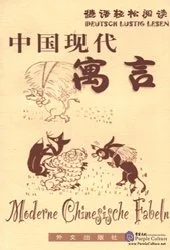 德语轻松阅读
DEUTSCH LUSTIG LESEN
中国现代
寓言
Moderne Chinesische Fabeln
外文出版社
Purple Culture